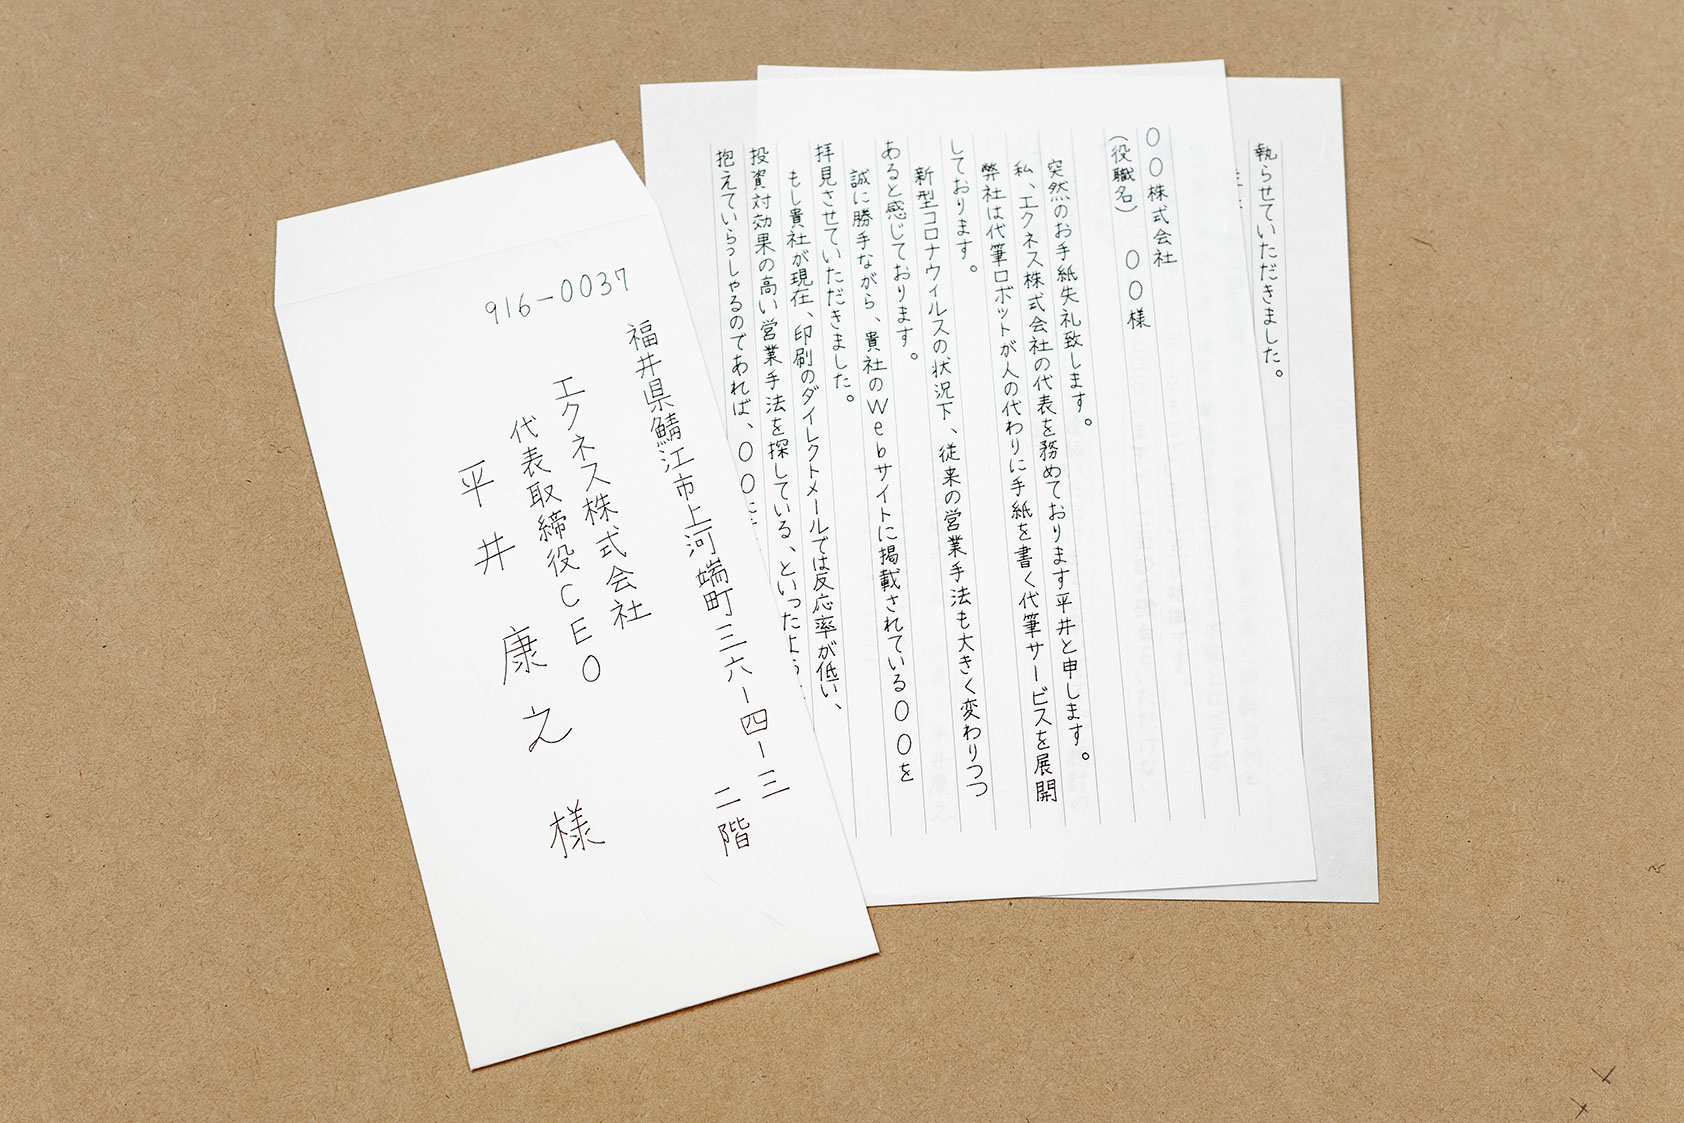 916-0037
福井県鯖江市上河端町三六-四-三
二階
エクネス株式会社
代表取締役CEO
平井康之様
〇〇株式会社
(役職名) 〇〇様
突然のお手紙失礼致します。
私、エクネス株式会社の代表を務めております平井と申します。
弊社は代筆ロボットが人の代わりに手紙を書く代筆サービスを展開
しております。
新型コロナウィルスの状況下、従来の営業手法も大きく変わりつつ
あると感じております。
誠に勝手ながら、貴社のWebサイトに掲載されている〇〇を
拝見させていただきました。
もし貴社が現在、印刷のダイレクトメールでは反応率が低い、
投資対効果の高い営業手法を探している、といったよう
抱えていらっしゃるのであれば、〇〇に
執らせていただきました。